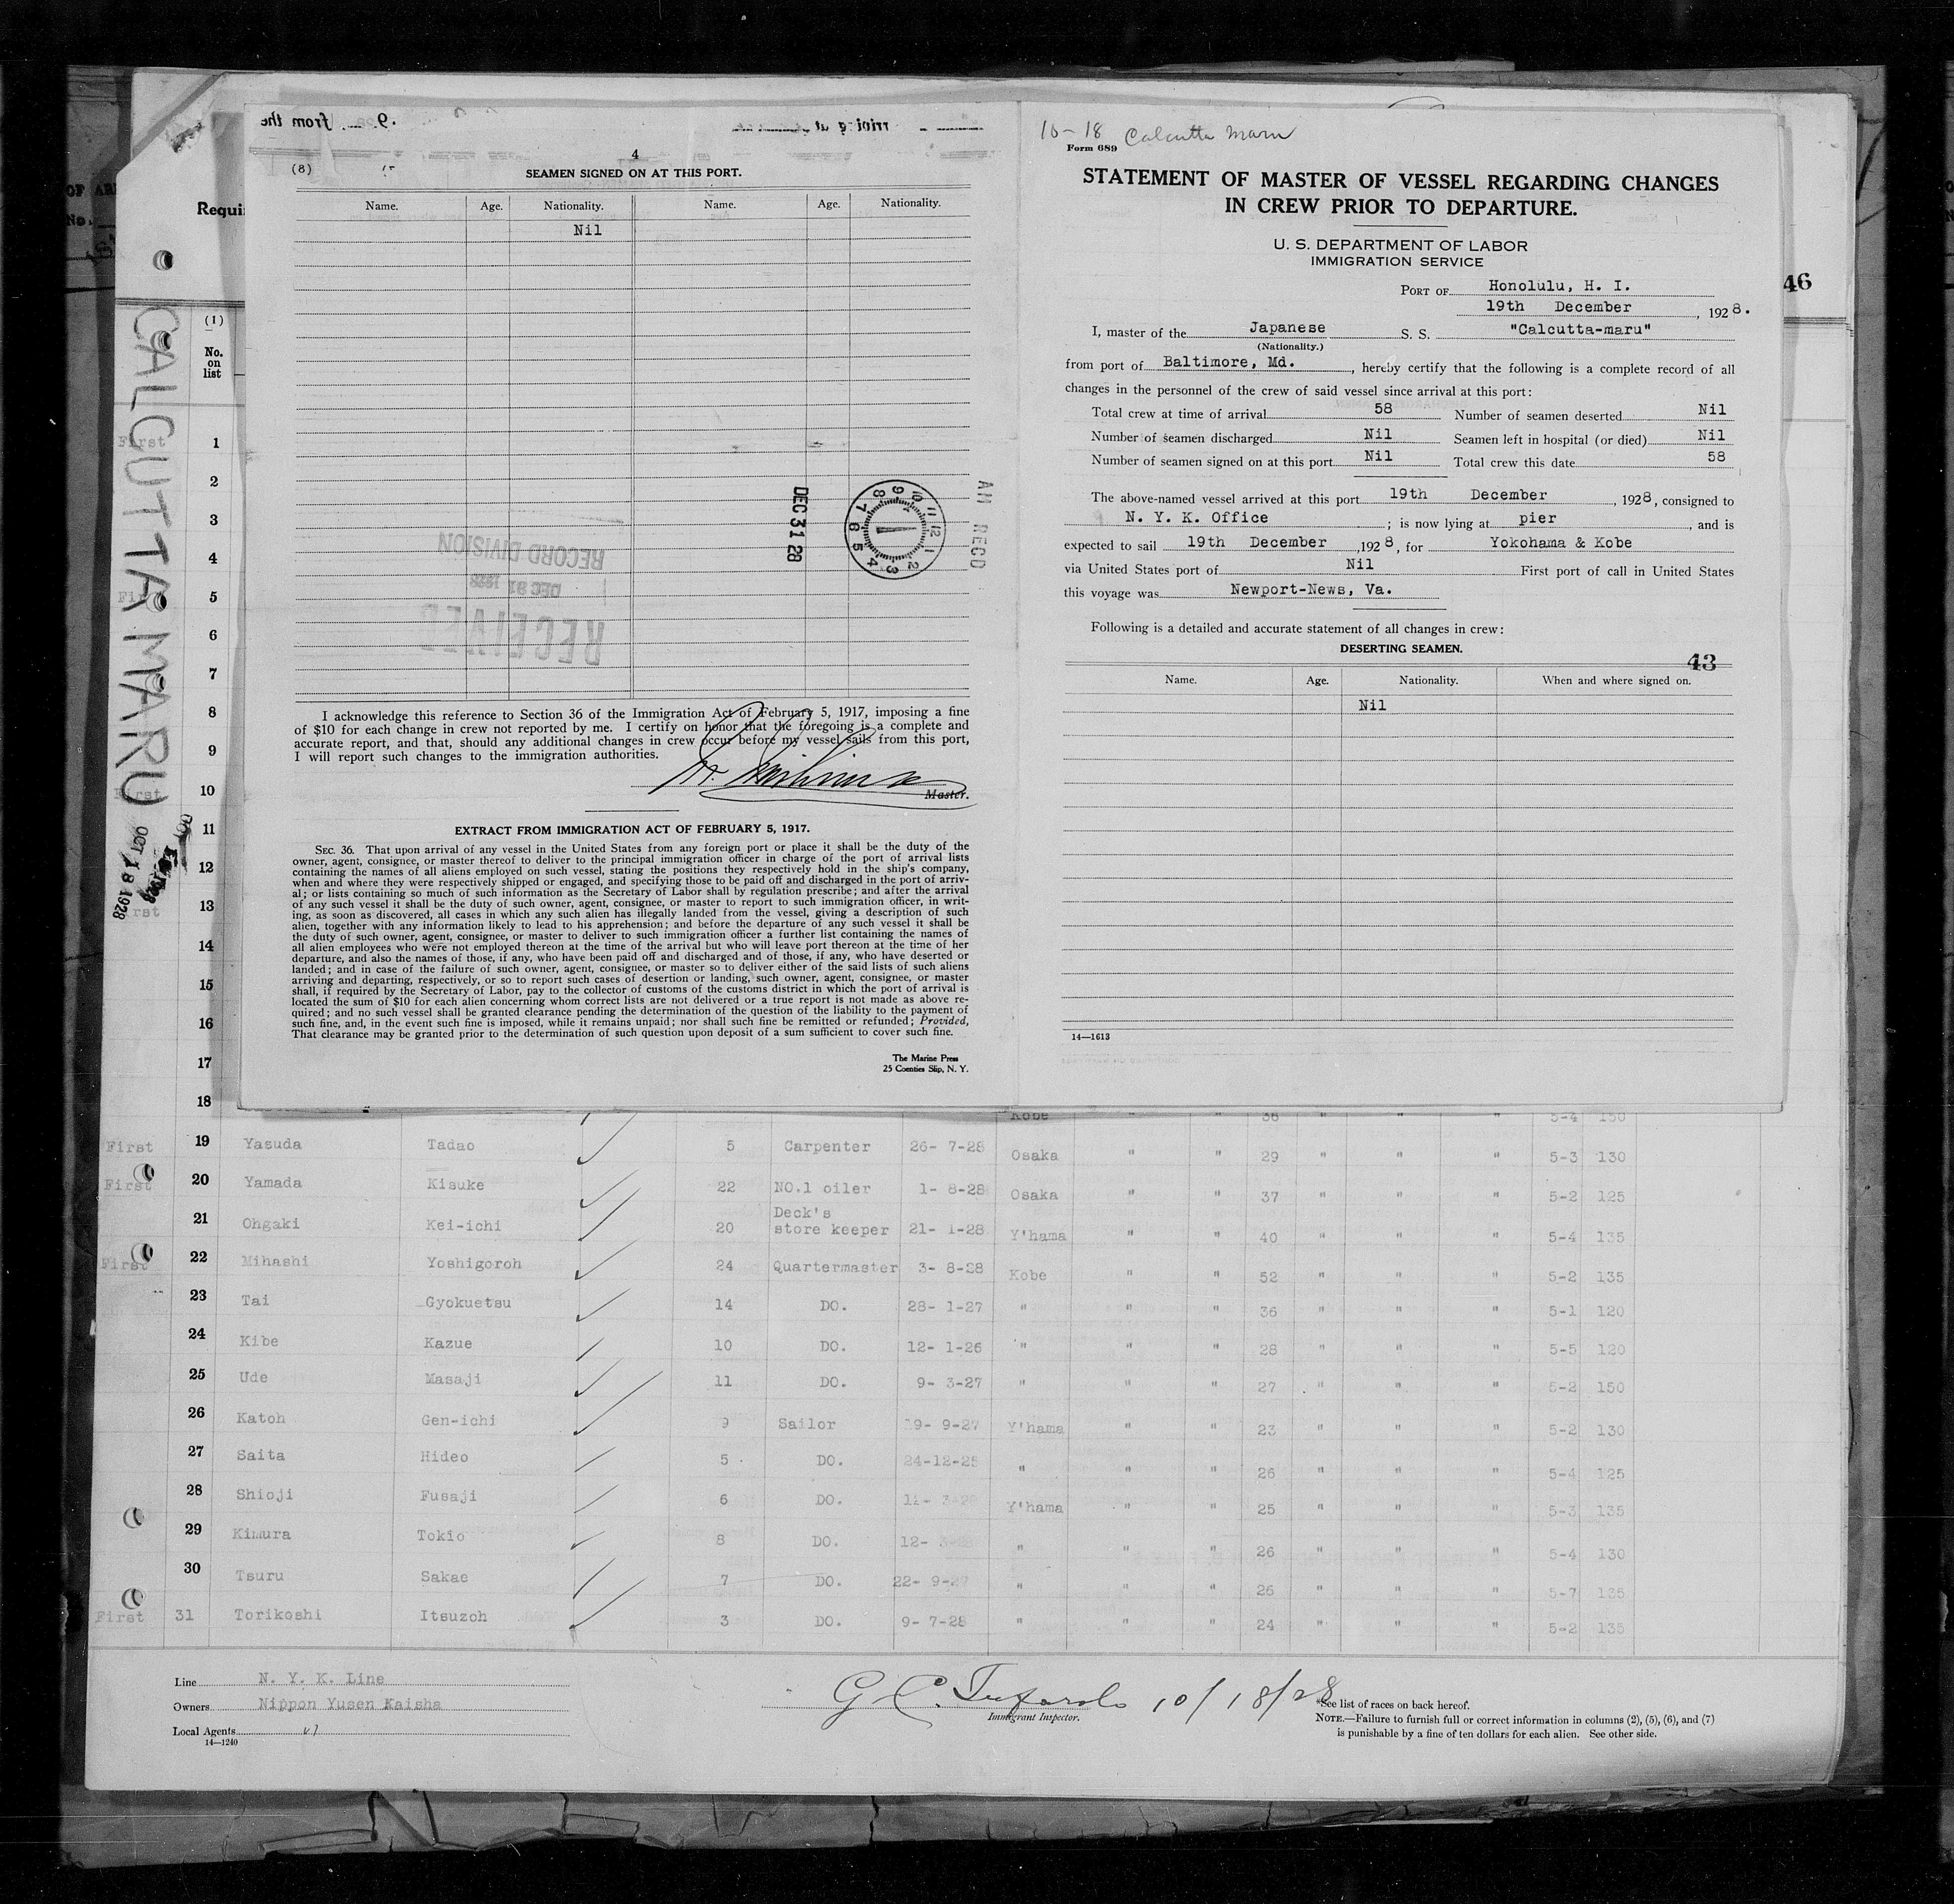 4
(8)
SEAMEN SIGNED ON AT THIS PORT.
Name. Age. Nationality. Name. Age. Nationality.
Nil
DEC 31 28
RECEIVED
DEC 31 1928
RECORD DIVISION
I acknowledge this reference to Section 36 of the Immigration Act of February 5, 1917, imposing a fine
of $10 for each change in crew not reported by me. I certify on honor that the foregoing is a complete and
accurate report, and that, should any additional changes in crew occur before my vessel sails from this port,
I will report such changes to the immigration authorities.
Master.
EXTRACT FROM IMMIGRATION ACT OF FEBRUARY 5, 1917.
SEC. 36. That upon arrival of any vessel in the United States from any foreign port or place it shall be the duty of the
owner, agent, consignee, or master thereof to deliver to the principal immigration officer in charge of the port of arrival lists
containing the names of all aliens employed on such vessel, stating the positions they respectively hold in the ship's company,
when and where they were respectively shipped or engaged, and specifying those to be paid off and discharged in the port of arriv-
al; or lists containing so much of such information as the Secretary of Labor shall by regulation prescribe; and after the arrival
of any such vessel it shall be the duty of such owner, agent, consignee, or master to report to such immigration officer, in writ-
ing, as soon as discovered, all cases in which any such alien has illegally landed from the vessel, giving a description of such
alien, together with any information likely to lead to his apprehension; and before the departure of any such vessel it shall be
the duty of such owner, agent, consignee, or master to deliver to such immigration officer a further list containing the names of
all alien employees who were not employed thereon at the time of the arrival but who will leave port thereon at the time of her
departure, and also the names of those, if any, who have been paid off and discharged and of those, if any, who have deserted or
landed; and in case of the failure of such owner, agent, consignee, or master so to deliver either of the said lists of such aliens
arriving and departing, respectively, or so to report such cases of desertion or landing, such owner, agent, consignee, or master
shall, if required by the Secretary of Labor, pay to the collector of customs of the customs district in which the port of arrival is
located the sum of $10 for each alien concerning whom correct lists are not delivered or a true report is not made as above re-
quired; and no such vessel shall be granted clearance pending the determination of the question of the liability to the payment of
such fine, and, in the event such fine is imposed, while it remains unpaid; nor shall such fine be remitted or refunded; Provided,
That clearance may be granted prior to the determination of such question upon deposit of a sum sufficient to cover such fine.
The Marine Press
25 Coenties Slip, N. Y.
10-18 Calcutta Maru
Form 689
STATEMENT OF MASTER OF VESSEL REGARDING CHANGES
IN CREW PRIOR TO DEPARTURE.
U. S. DEPARTMENT OF LABOR
IMMIGRATION SERVICE
PORT OF Honolulu, H. I.
19th December, 1928.
I, master of the Japanese S. S. "Calcutta-maru"
(Nationality.)
from port of Baltimore, Md., hereby certify that the following is a complete record of all
changes in the personnel of the crew of said vessel since arrival at this port:
Total crew at time of arrival 58 Number of seamen deserted Nil
Number of seamen discharged Nil Seamen left in hospital (or died) Nil
Number of seamen signed on at this port Nil Total crew this date 58
The above-named vessel arrived at this port 19th December, 1928, consigned to
N. Y. K. Office; is now lying at pier, and is
expected to sail 19th December, 1928, for Yokohama & Kobe
via United States port of Nil First port of call in United States
this voyage was Newport-News, Va.
Following is a detailed and accurate statement of all changes in crew:
DESERTING SEAMEN.
43
Name. Age. Nationality. When and where signed on.
Nil
14—1613
46
CALCUTTA MARU
OCT 18 1928
Requi
(1)
No.
on
list
First 1
2
3
4
5
6
7
8
9
First 10
11
12
13
14
15
16
17
18 Kobe " " 36 " " " 5-4 150
First 19 Yasuda Tadao 5 Carpenter 26- 7-28 Osaka " " 29 " " " 5-3 130
First 20 Yamada Kisuke 22 NO.1 oiler 1- 8-28 Osaka " " 37 " " " 5-2 125
21 Ohgaki Kei-ichi 20 Deck's store keeper 21- 1-28 Y'hama " " 40 " " " 5-4 135
First 22 Mihashi Yoshigoroh 24 Quartermaster 3- 8-28 Kobe " " 52 " " " 5-2 135
23 Tai Gyokuetsu 14 DO. 28- 1-27 " " " 36 " " " 5-1 120
24 Kibe Kazue 10 DO. 12- 1-26 " " " 28 " " " 5-5 120
25 Ude Masaji 11 DO. 9- 3-27 " " " 27 " " " 5-2 150
26 Katoh Gen-ichi 9 Sailor 19- 9-27 Y'hama " " 23 " " " 5-2 130
27 Saita Hideo 5 DO. 24-12-25 " " " 26 " " " 5-4 125
28 Shioji Fusaji 6 DO. Y'hama " " 25 " " " 5-3 135
29 Kimura Tokio 8 DO. " " " 26 " " " 5-4 130
30 Tsuru Sakae 7 DO. 22- 9-27 " " " 26 " " " 5-7 135
First 31 Torikoshi Itsuzoh 3 DO. 9- 7-28 " " " 24 " " " 5-2 135
Line N. Y. K. Line
Owners Nippon Yusen Kaisha
Local Agents
14—1240
10/18/28
Immigrant Inspector.
*See list of races on back hereof.
NOTE.—Failure to furnish full or correct information in columns (2), (5), (6), and (7)
is punishable by a fine of ten dollars for each alien. See other side.